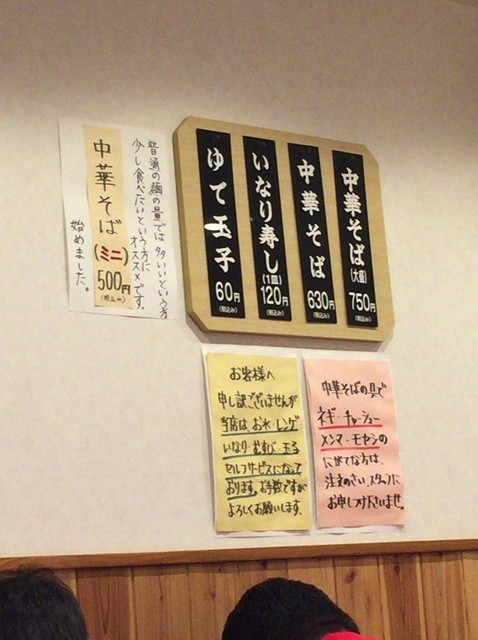 中華そば(大盛)
750円
(税込み)
中華そば
630円
(税込み)
いなり寿し(1皿)
120円
(税込み)
ゆで玉子
60円
(税込み)
普通の麺の量では多いという方
少し食べたいという方に
オススメです。
中華そば(ミニ)
500円
(税込み)
始めました。
お客様へ
申し訳ございませんが
当店は、お水・レンゲ
いなり・むすび・玉子
セルフサービスになって
おります。お手数ですが
よろしくお願いします。
中華そばの具で
ネギ・チャーシュー
メンマ・モヤシの
にがてな方は、
注文のさい、スタッフに
お申しつけ下さいませ。